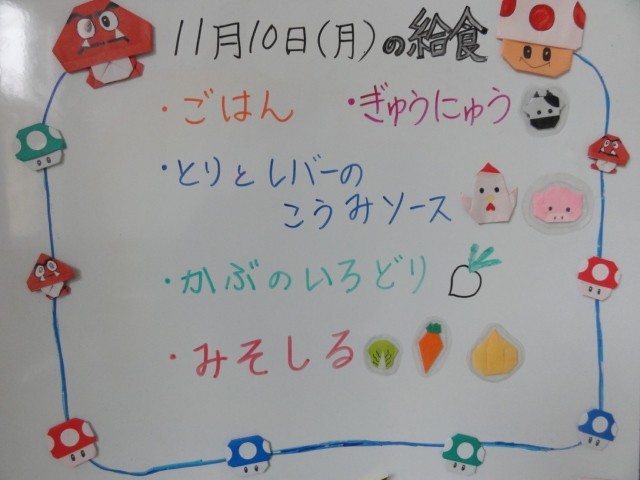 11月10日(月)の給食
・ごはん ・ぎゅうにゅう
・とりとレバーの
こうみソース
・かぶのいろどり
・みそしる